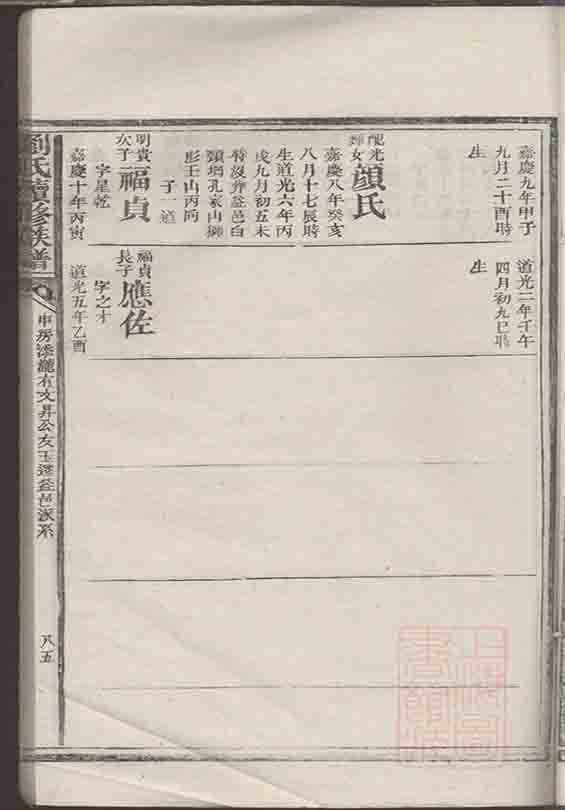 嘉慶九年甲子
九月二十酉時
生
配光
輝女
顔氏
嘉慶八年癸亥
八月十七辰時
生道光六年丙
戌九月初五未
時沒葬益邑白
頸塅孔家山獅
形壬山丙向
子一道
明貴
次子
福貞
字星乾
嘉慶十年丙寅
道光二年壬午
四月初九巳時
生
福貞
長子
應佐
字之才
道光五年乙酉
劉氏續修族譜
申房添瀧右文昇公友玉遷益邑派系
八五
上海圖書館藏